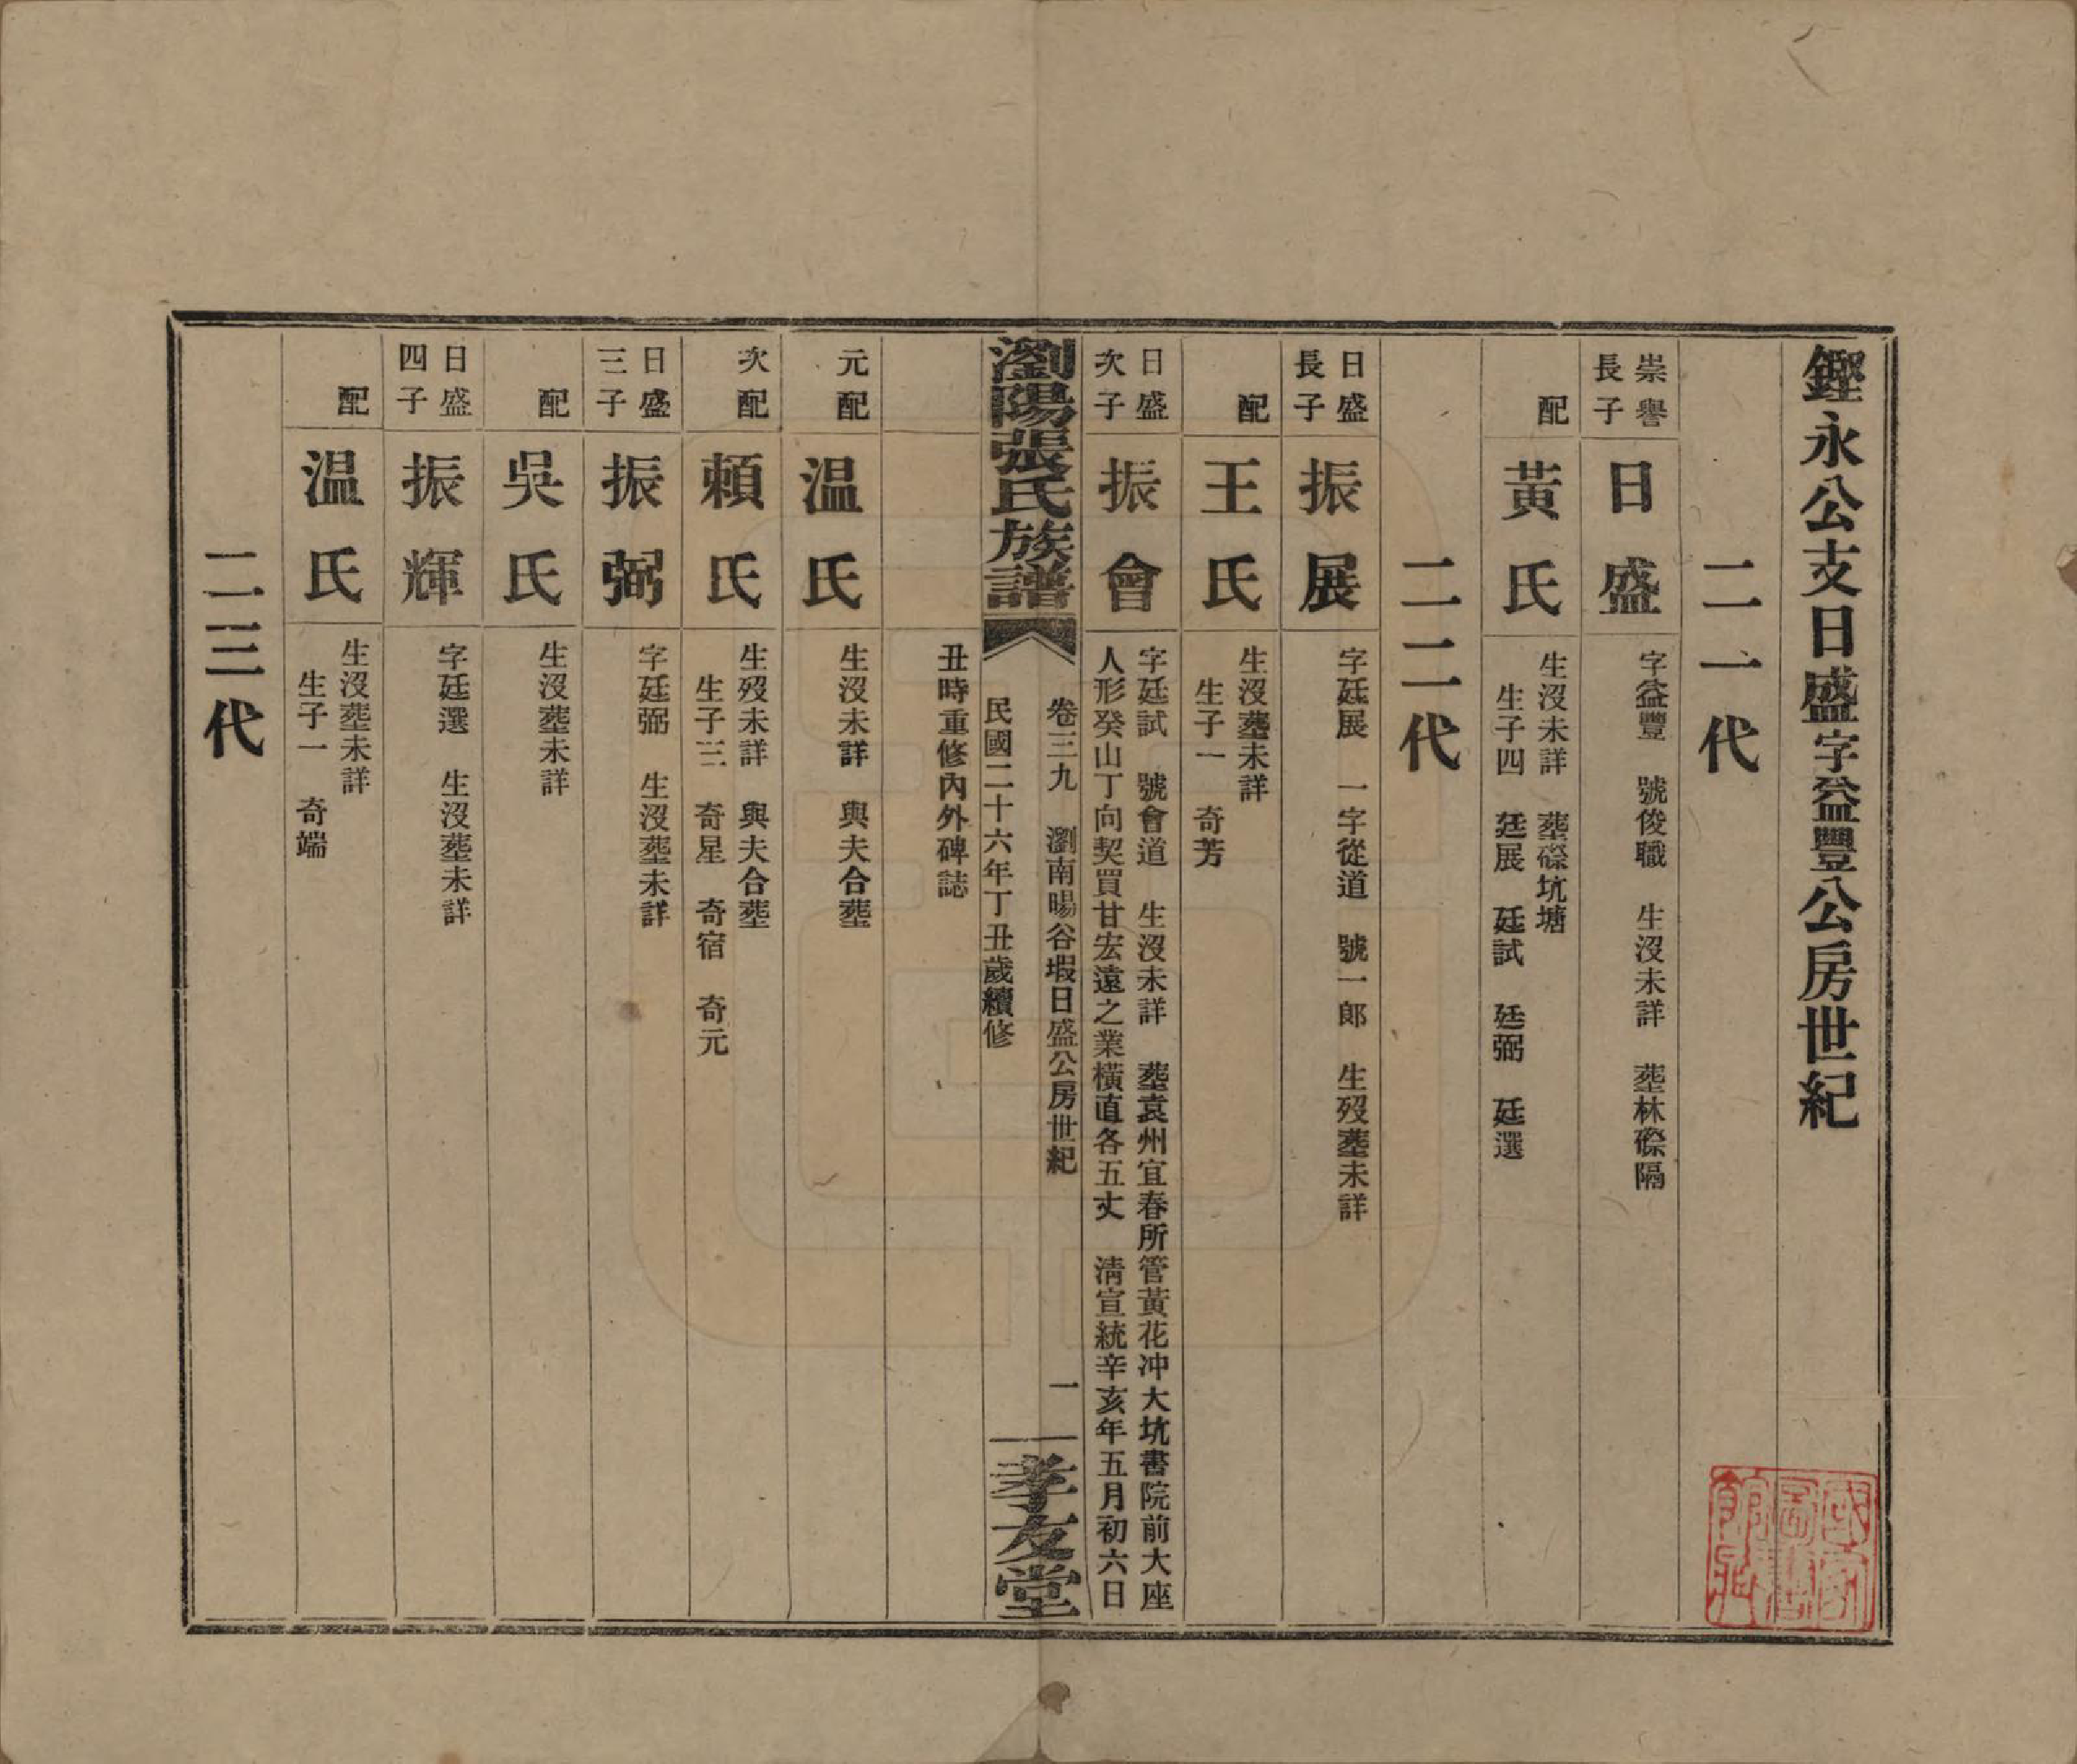 鏗永公支日盛字益豐公房世紀
二一代
崇譽長子
日盛
字益豐　號俊職　生沒未詳　塟林磜隔
配
黃氏
生沒未詳　塟磜坑塘
生子四　廷展　廷試　廷弼　廷選
二二代
日盛長子
振展
字廷展　一字從道　號一郎　生歿塟未詳
配
王氏
生沒塟未詳
生子一　奇芳
日盛次子
振會
字廷試　號會道　生沒未詳　塟袁州宜春所管黃花冲大坑書院前大座
人形癸山丁向契買甘宏遠之業橫直各五丈　清宣統辛亥年五月初六日
瀏陽張氏族譜
卷三九　瀏南暘谷塅日盛公房世紀
一
民國二十六年丁丑歲續修
孝友堂
丑時重修內外碑誌
元配
温氏
生沒未詳　與夫合塟
次配
賴氏
生歿未詳　與夫合塟
生子三　奇星　奇宿　奇元
日盛三子
振弼
字廷弼　生沒塟未詳
配
吳氏
生沒塟未詳
日盛四子
振輝
字廷選　生沒塟未詳
配
温氏
生沒塟未詳
生子一　奇端
二三代